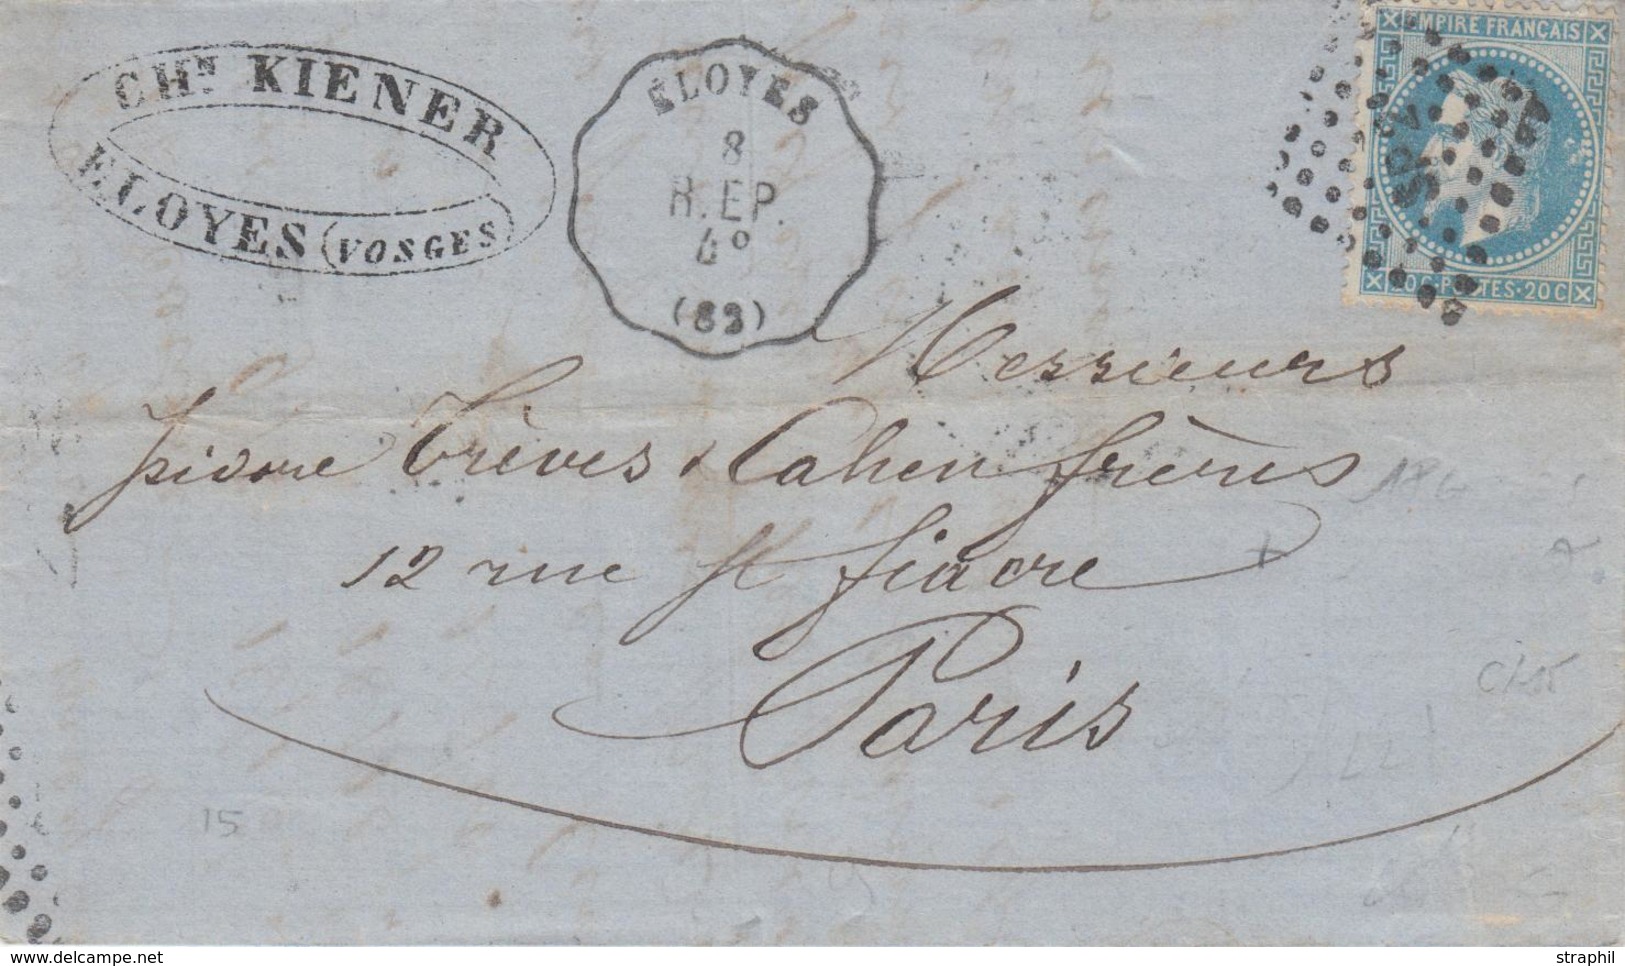 CHᴺ KIENER
ELOYES (VOSGES)
ELOYES
8
R. EP.
4º
(83)
EMPIRE FRANÇAIS
POSTES·20C
Messieurs
Isidore Trèves & Cahen frères
12 rue St fiacre
Paris
15
© delcampe.net
straphil